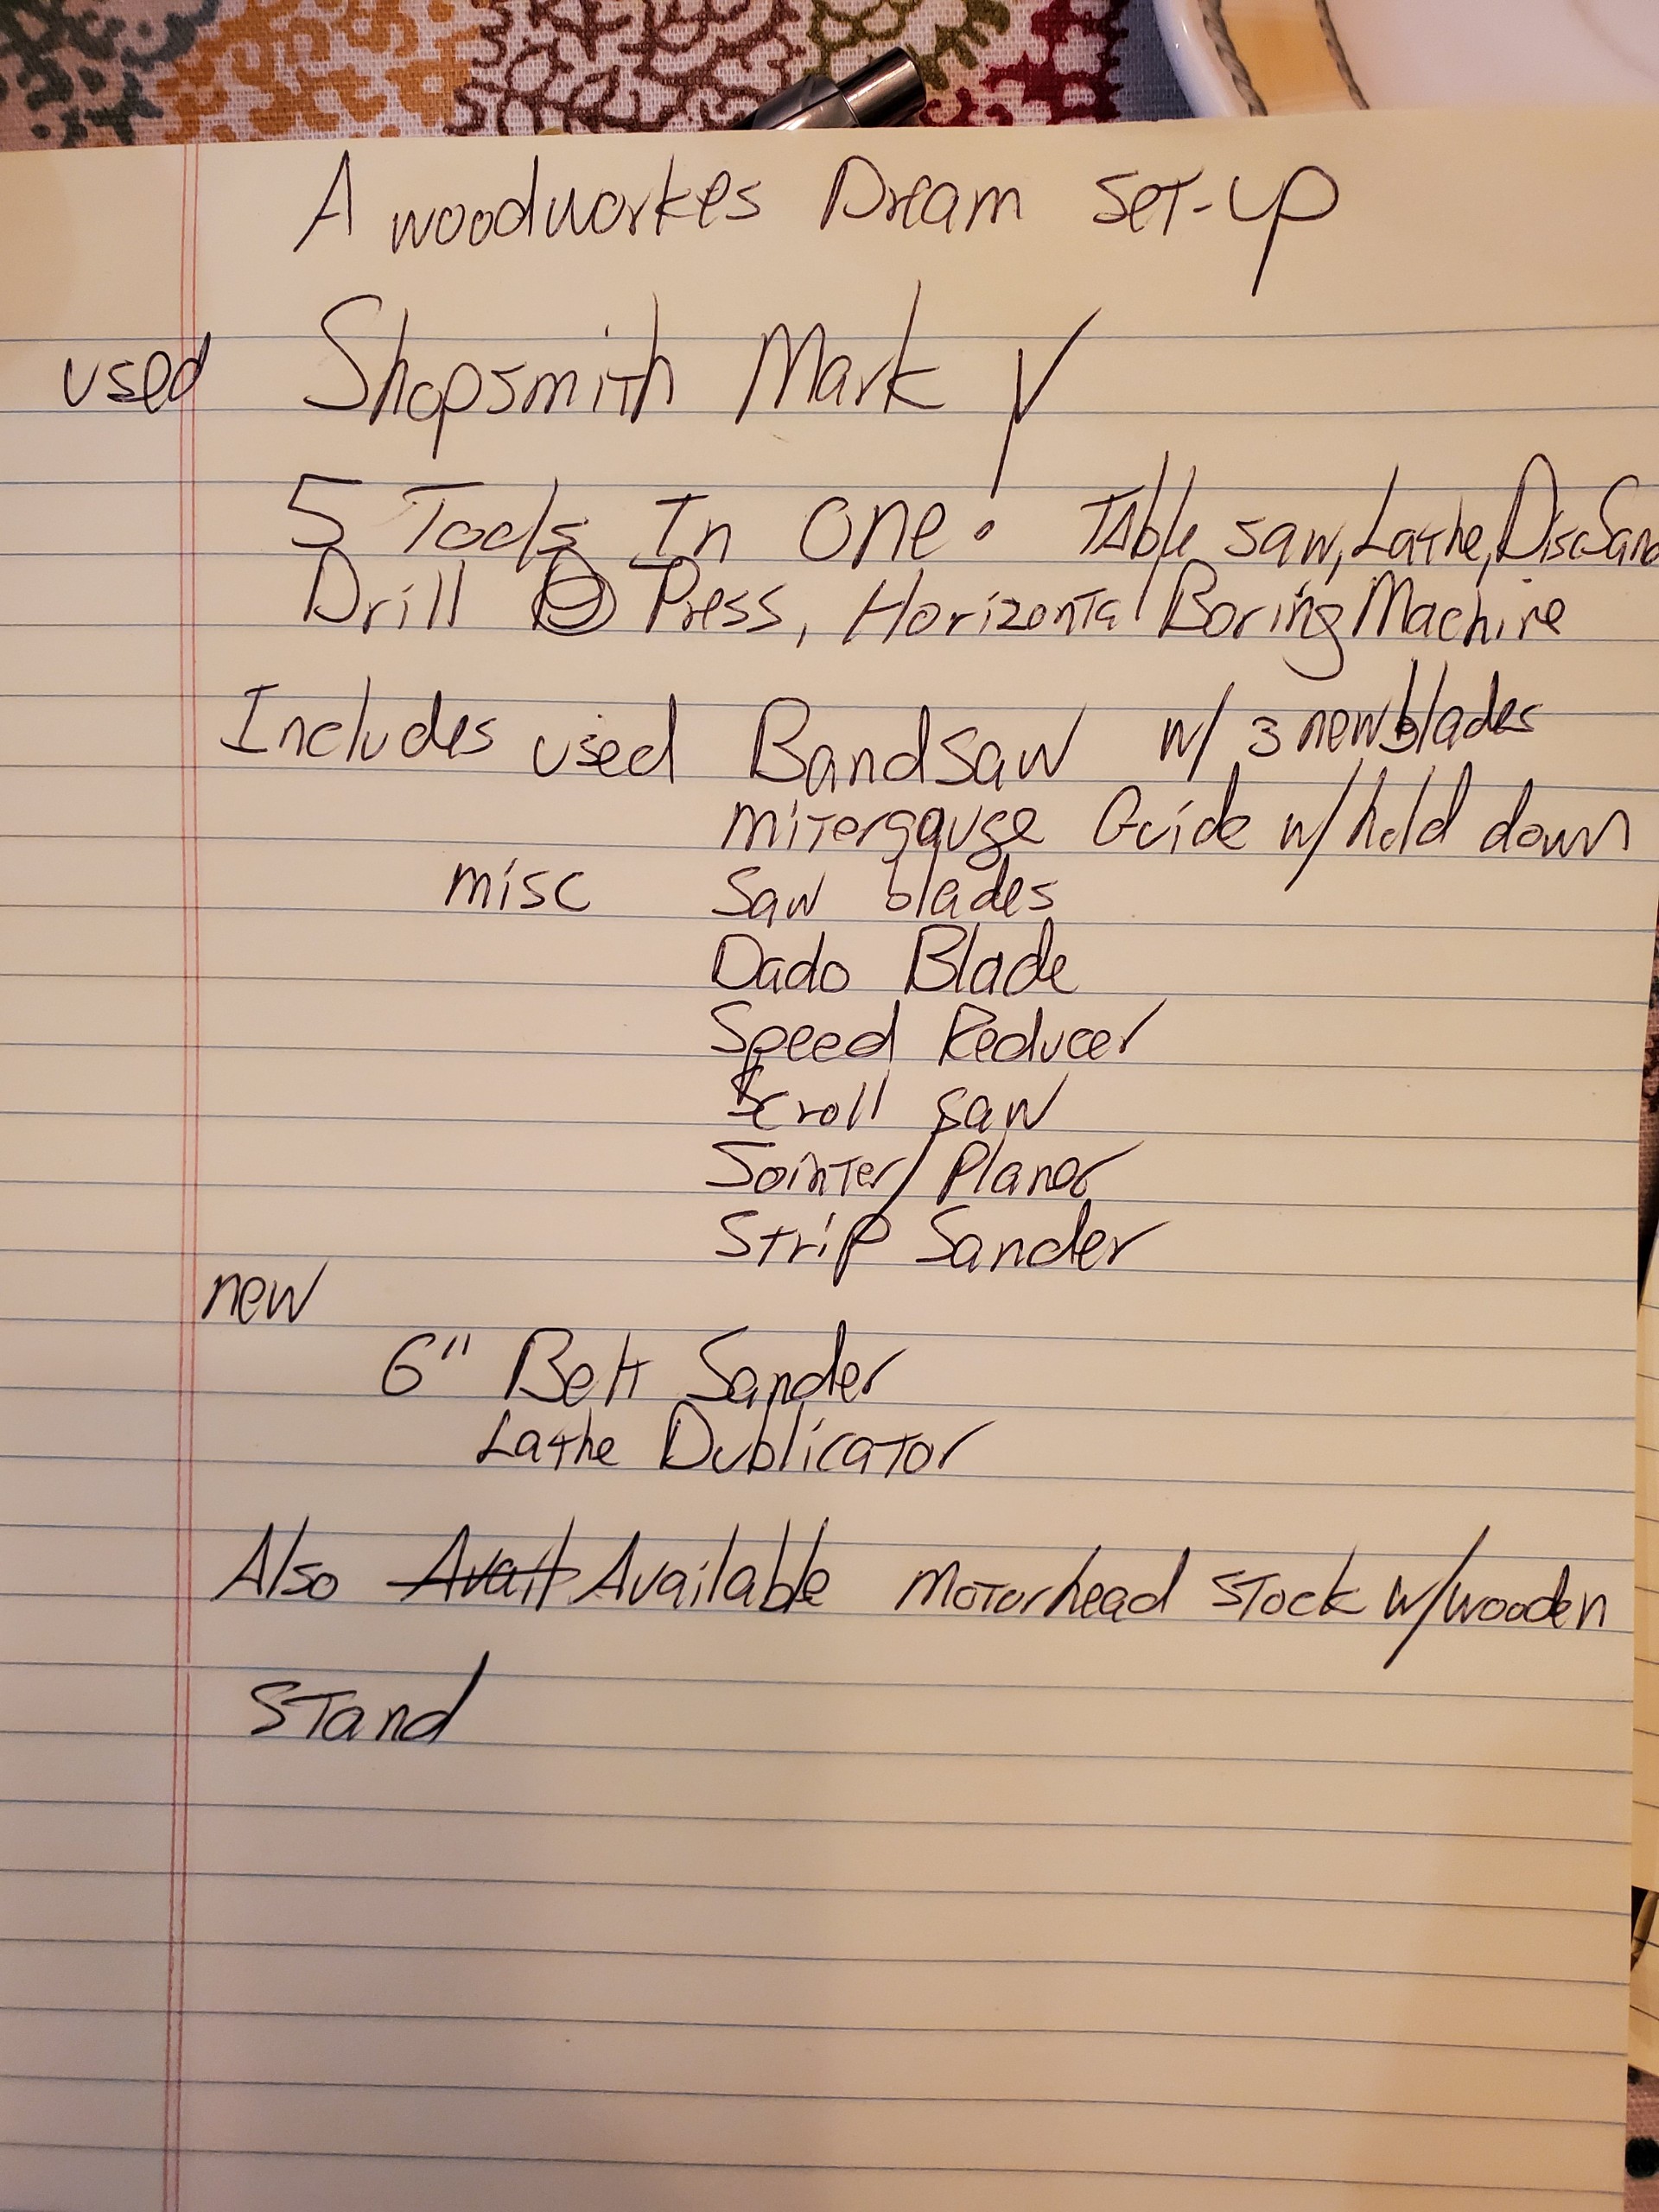 A woodworkes Dream set-up
used Shopsmith Mark V
5 Tools In one: Table saw, Lathe, Disc Sand
Drill Press, Horizontal Boring Machine
Includes used Bandsaw w/ 3 new blades
mitergauge Guide w/ hold down
misc Saw blades
Dado Blade
Speed Reducer
Scroll saw
Jointer/Planer
Strip Sander
new
6" Belt Sander
Lathe Dublicator
Also Avail Available Motorhead stock w/wooden
Stand